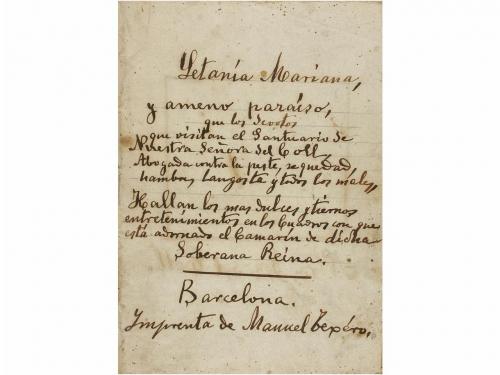 Letanía Mariana,
y ameno paraíso,
que los devotos
que visitan el Santuario de
Nuestra Señora del Coll,
Abogada contra la peste, sequedad,
hambre, langosta y todos los males,
Hallan los mas dulces y tiernos
entretenimientos en los Cuadros con que
está adornado el Camarin de dicha
Soberana Reina.
Barcelona.
Imprenta de Manuel Texéro.